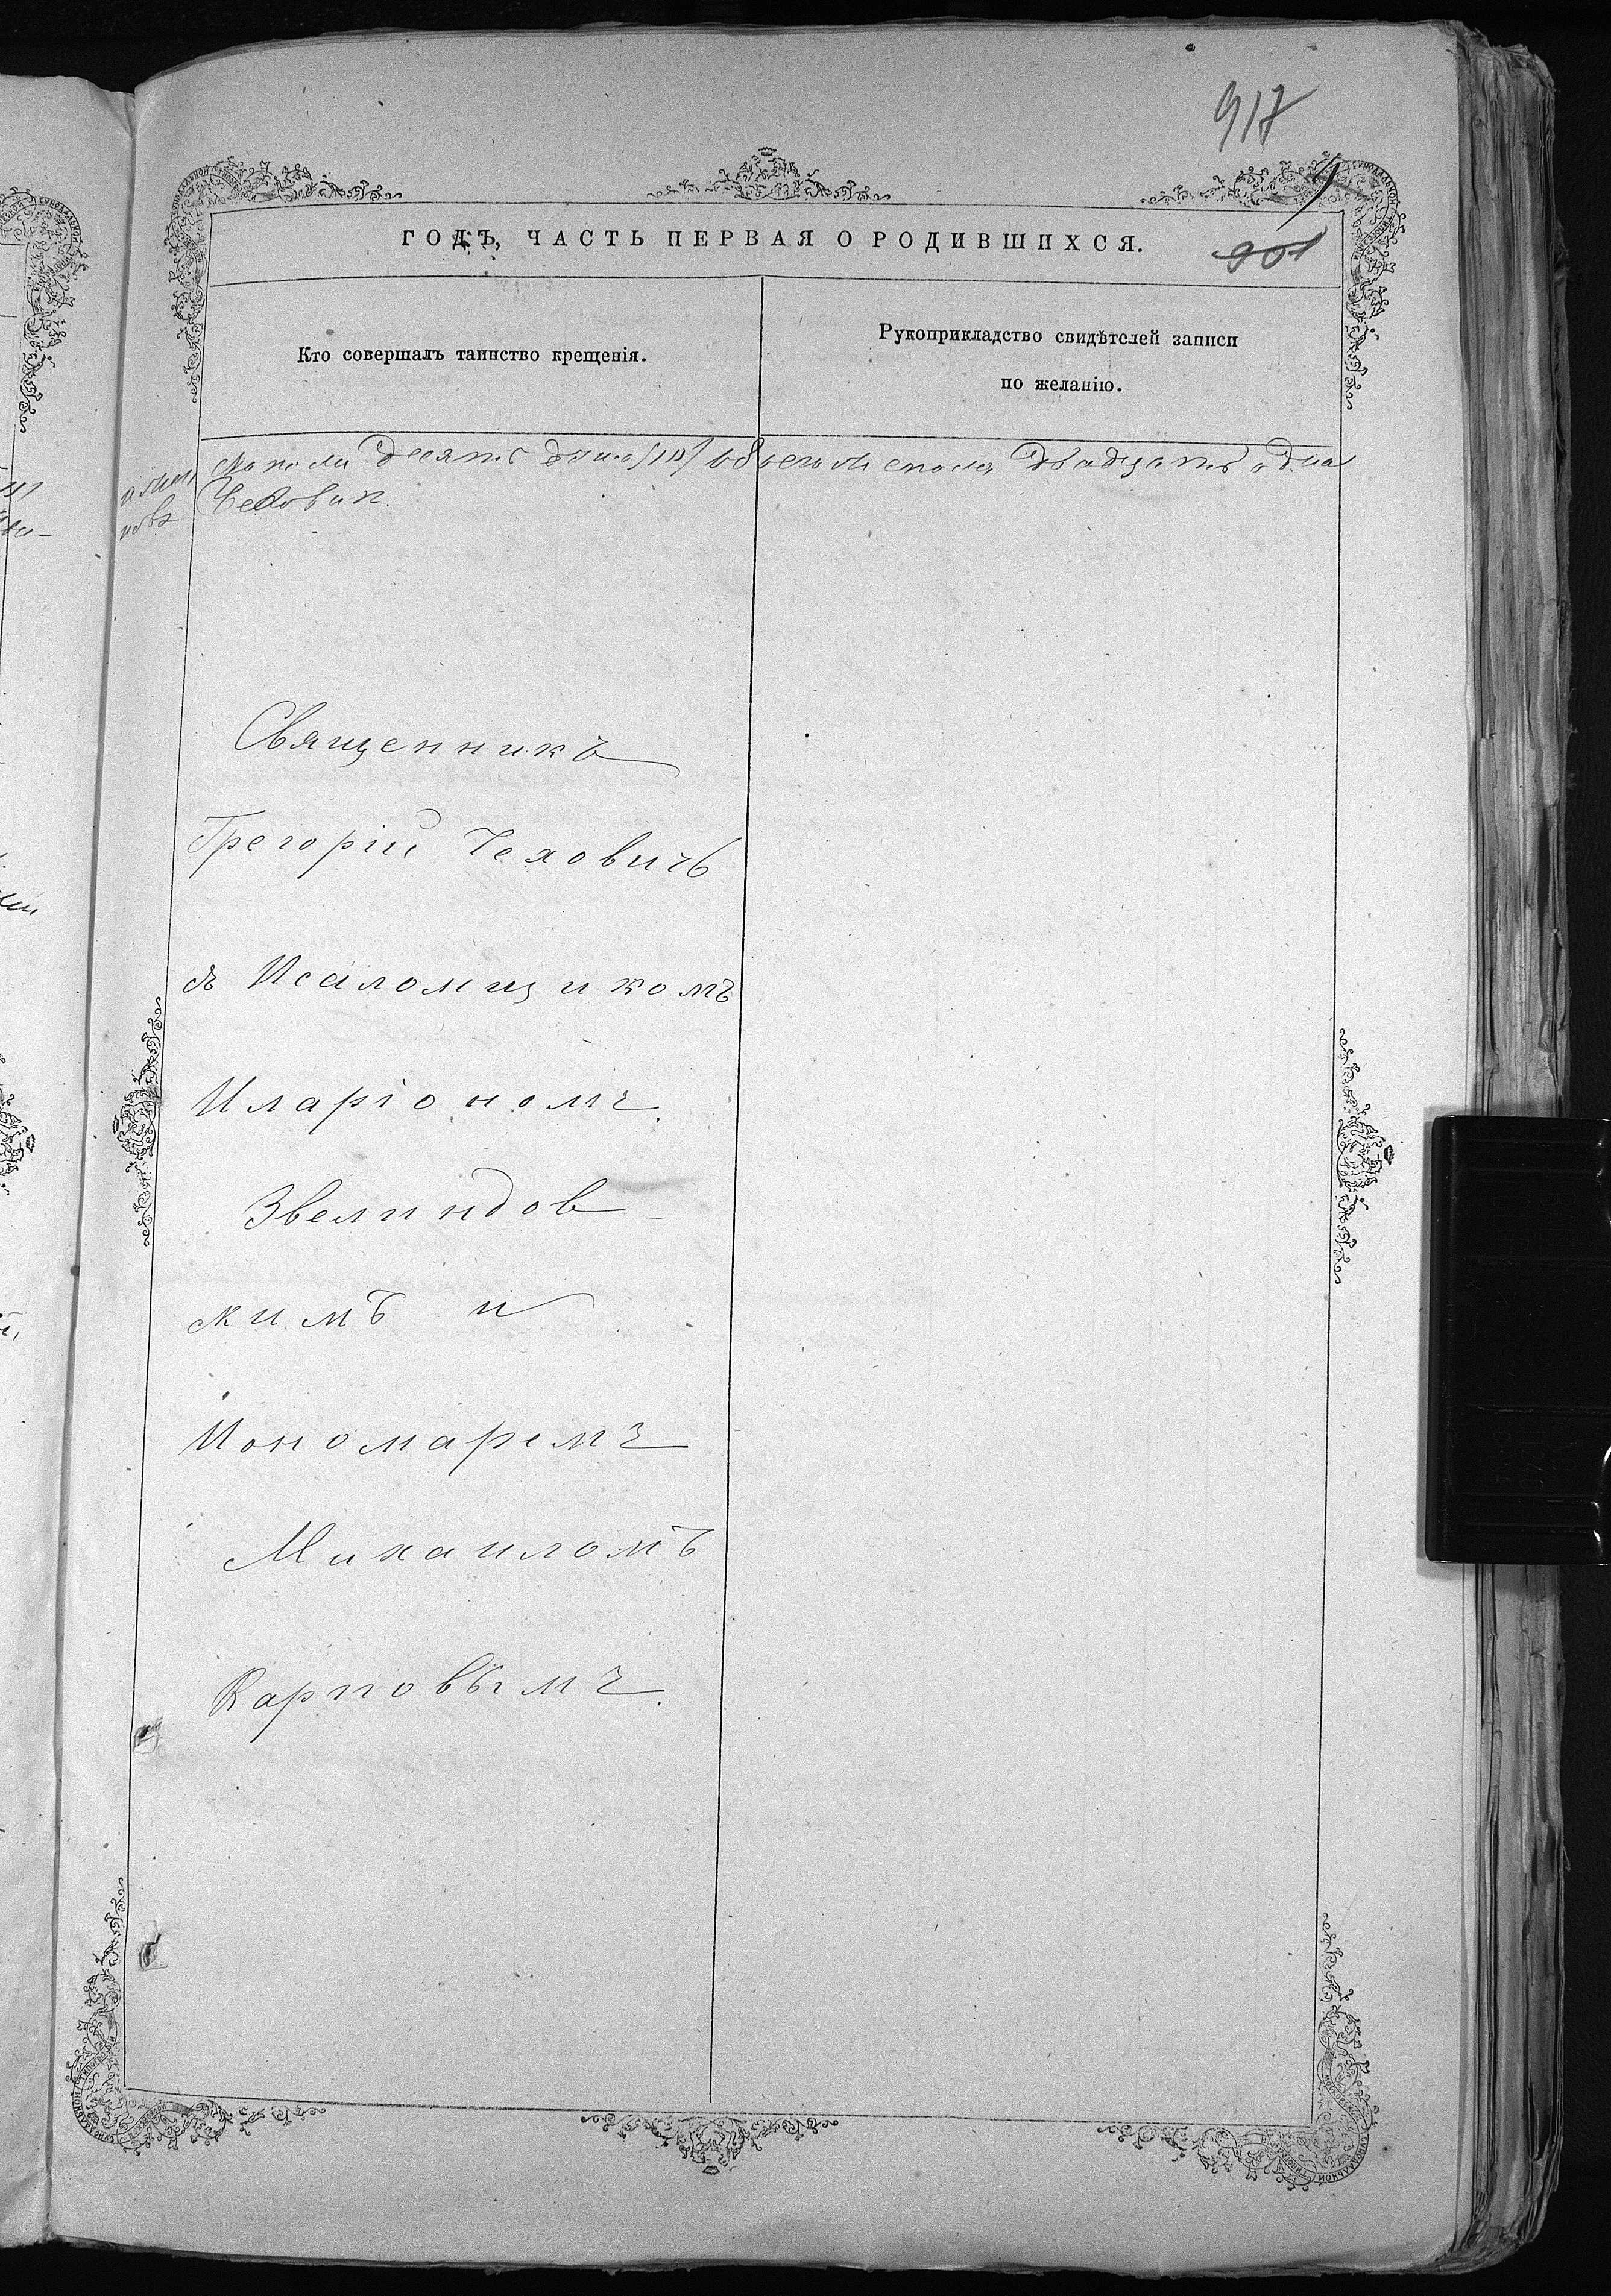 917
ГОДЪ, ЧАСТЬ ПЕРВАЯ О РОДИВШИХСЯ.
901
Кто совершалъ таинство крещенія.
Рукоприкладство свидѣтелей записи
по желанію.
десять двадцать одна
Человѣк.
Священникъ
Грегорій Чеховичъ
съ Псаломщикомъ
Иларіономъ
Звелиндов-
кимъ и
Пономаремъ
Михаиломъ
Карповымъ.